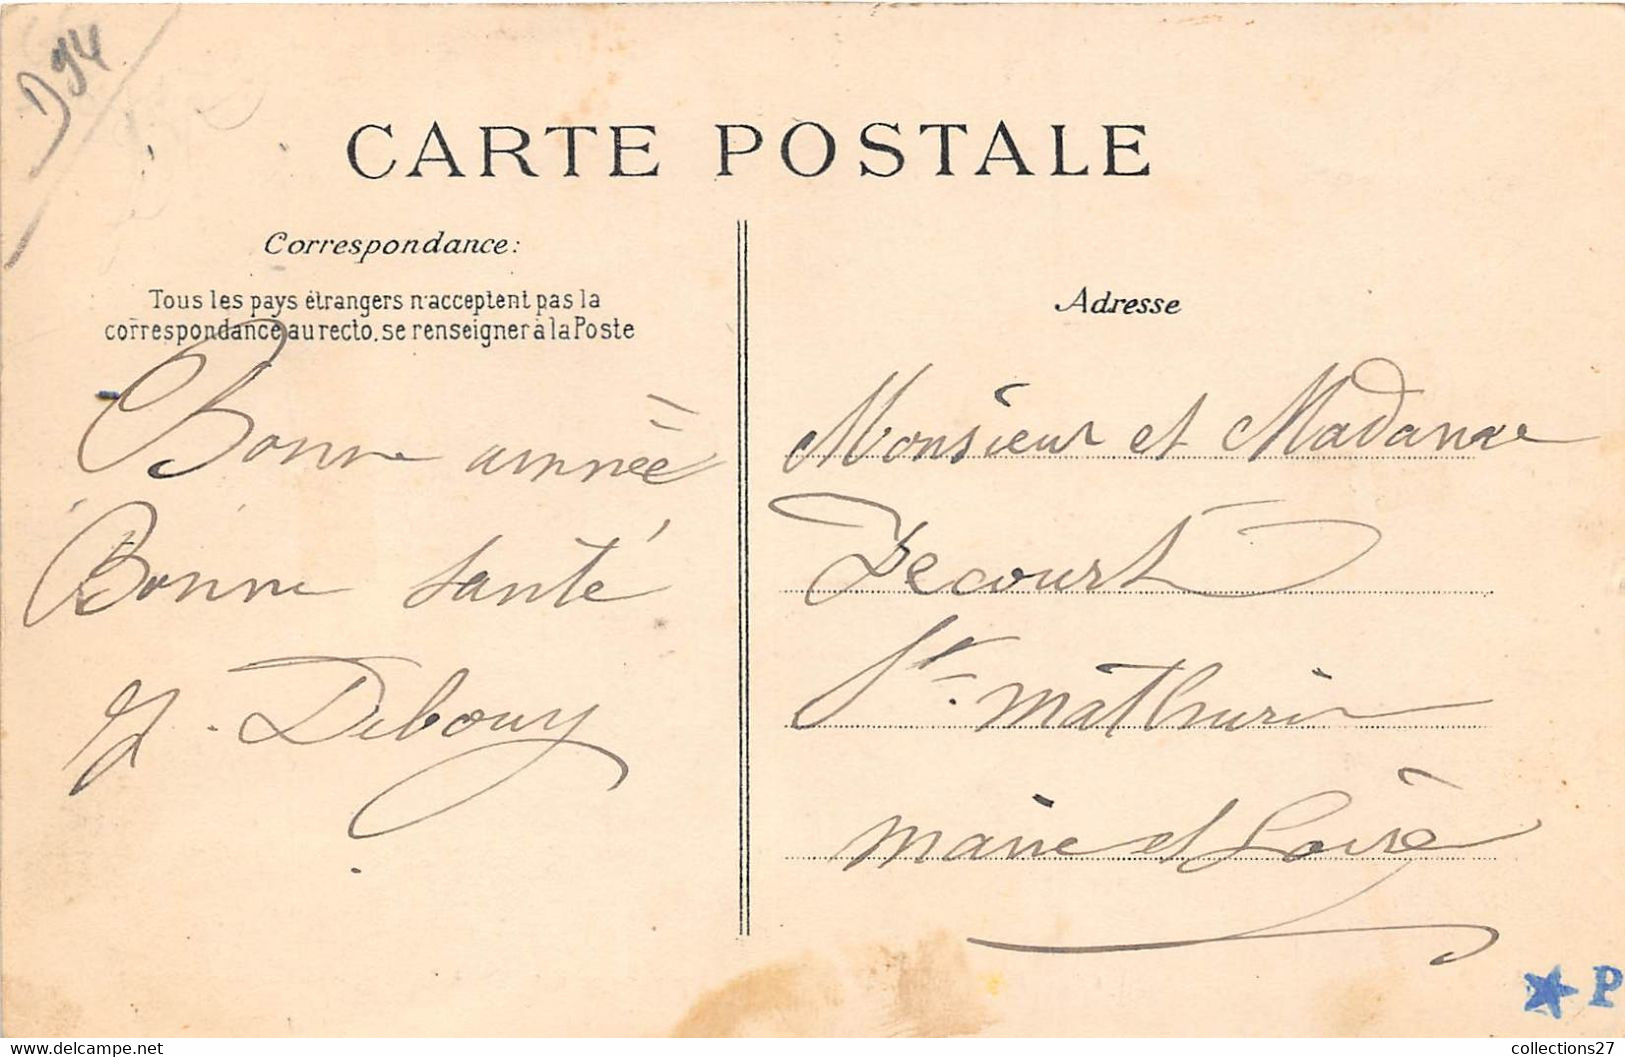 D94
CARTE POSTALE
Correspondance:
Tous les pays étrangers n'acceptent pas la
correspondance au recto, se renseigner à la Poste
Bonne année
Bonne santé
Debouy
Adresse
Monsieur et Madame
Jecourt
St. Mathurin
Maine et Loire
★ P
collections27